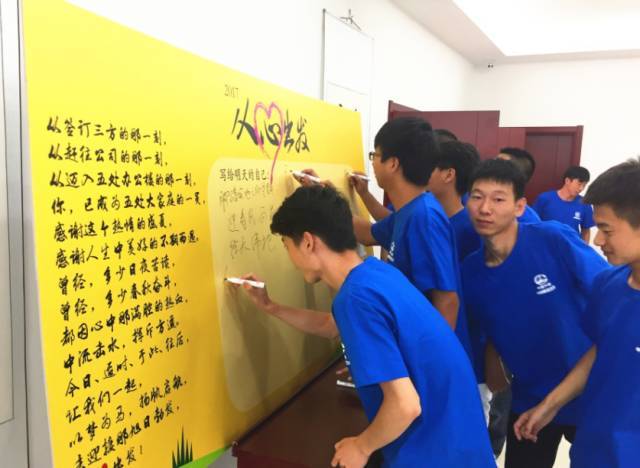 2017
从心出发
写给明天的自己:
从签订三方的那一刻,
从赶往公司的那一刻,
从迈入五处办公楼的那一刻,
你,已成为五处大家庭的一员,
感谢这个热情的盛夏,
感谢人生中美好的不期而遇,
曾经,多少日夜苦读,
曾经,多少春秋奋斗,
都因心中那满腔的热血,
中流击水,挥斥方遒,
今日、这时、于此、往后,
让我们一起,
以梦为马,扬帆启航,
去迎接那旭日勃发,
出发!